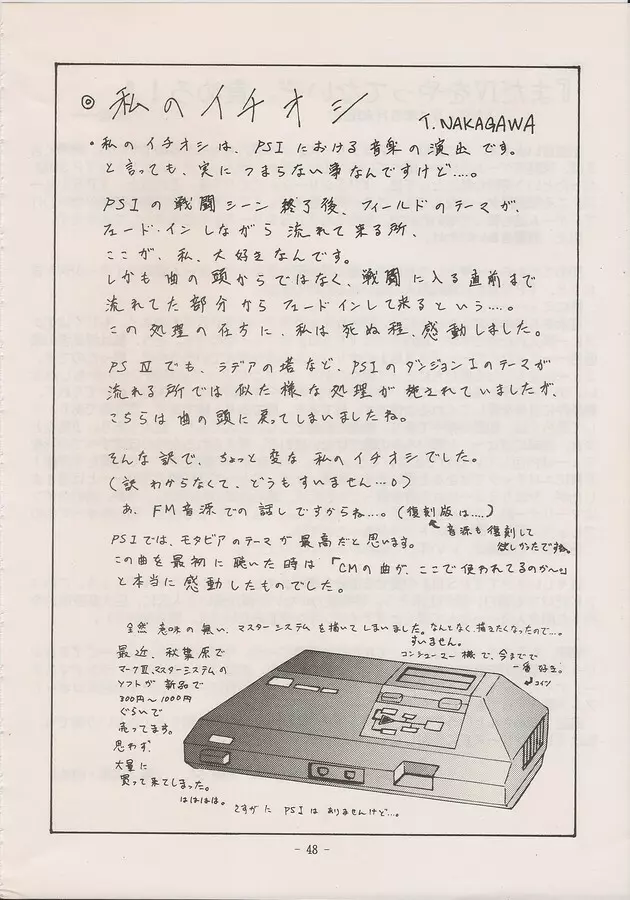 ◎ 私のイチオシ
T. NAKAGAWA
・私のイチオシは、PSIにおける音楽の演出です。
と言っても、実につまらない事なんですけど…。
PSIの戦闘シーン終了後、フィールドのテーマが、
フェード・インしながら流れて来る所、
ここが、私、大好きなんです。
しかも曲の頭からではなく、戦闘に入る直前まで
流れてた部分からフェードインして来るという…。
この処理の在方に、私は死ぬ程、感動しました。
PSⅣでも、ラデアの塔など、PSIのダンジョンIのテーマが
流れる所では似た様な処理が施されていましたが、
こちらは曲の頭に戻ってしまいましたね。
そんな訳で、ちょっと変な私のイチオシでした。
(訳わからなくて、どうもすいません…。)
あ、FM音源での話しですからね…。(復刻版は…)
音源も復刻して
欲しかったですね。
PSIでは、モタビアのテーマが最高だと思います。
この曲を最初に聴いた時は「CMの曲が、ここで使われてるのか~。」
と本当に感動したものでした。
全然意味の無い、マスターシステムを描いてしまいました。なんとなく、描きたくなったので…。
すいません。
コンシューマー機で、今までで
一番好き。
↲コイツ
最近、秋葉原で
マークⅢ、マスターシステムの
ソフトが新品で
300円〜1000円
ぐらいで
売ってます。
思わず、
大量に
買って来てしまった。
ははははは。
さすがにPSIはありませんけど…。
- 48 -